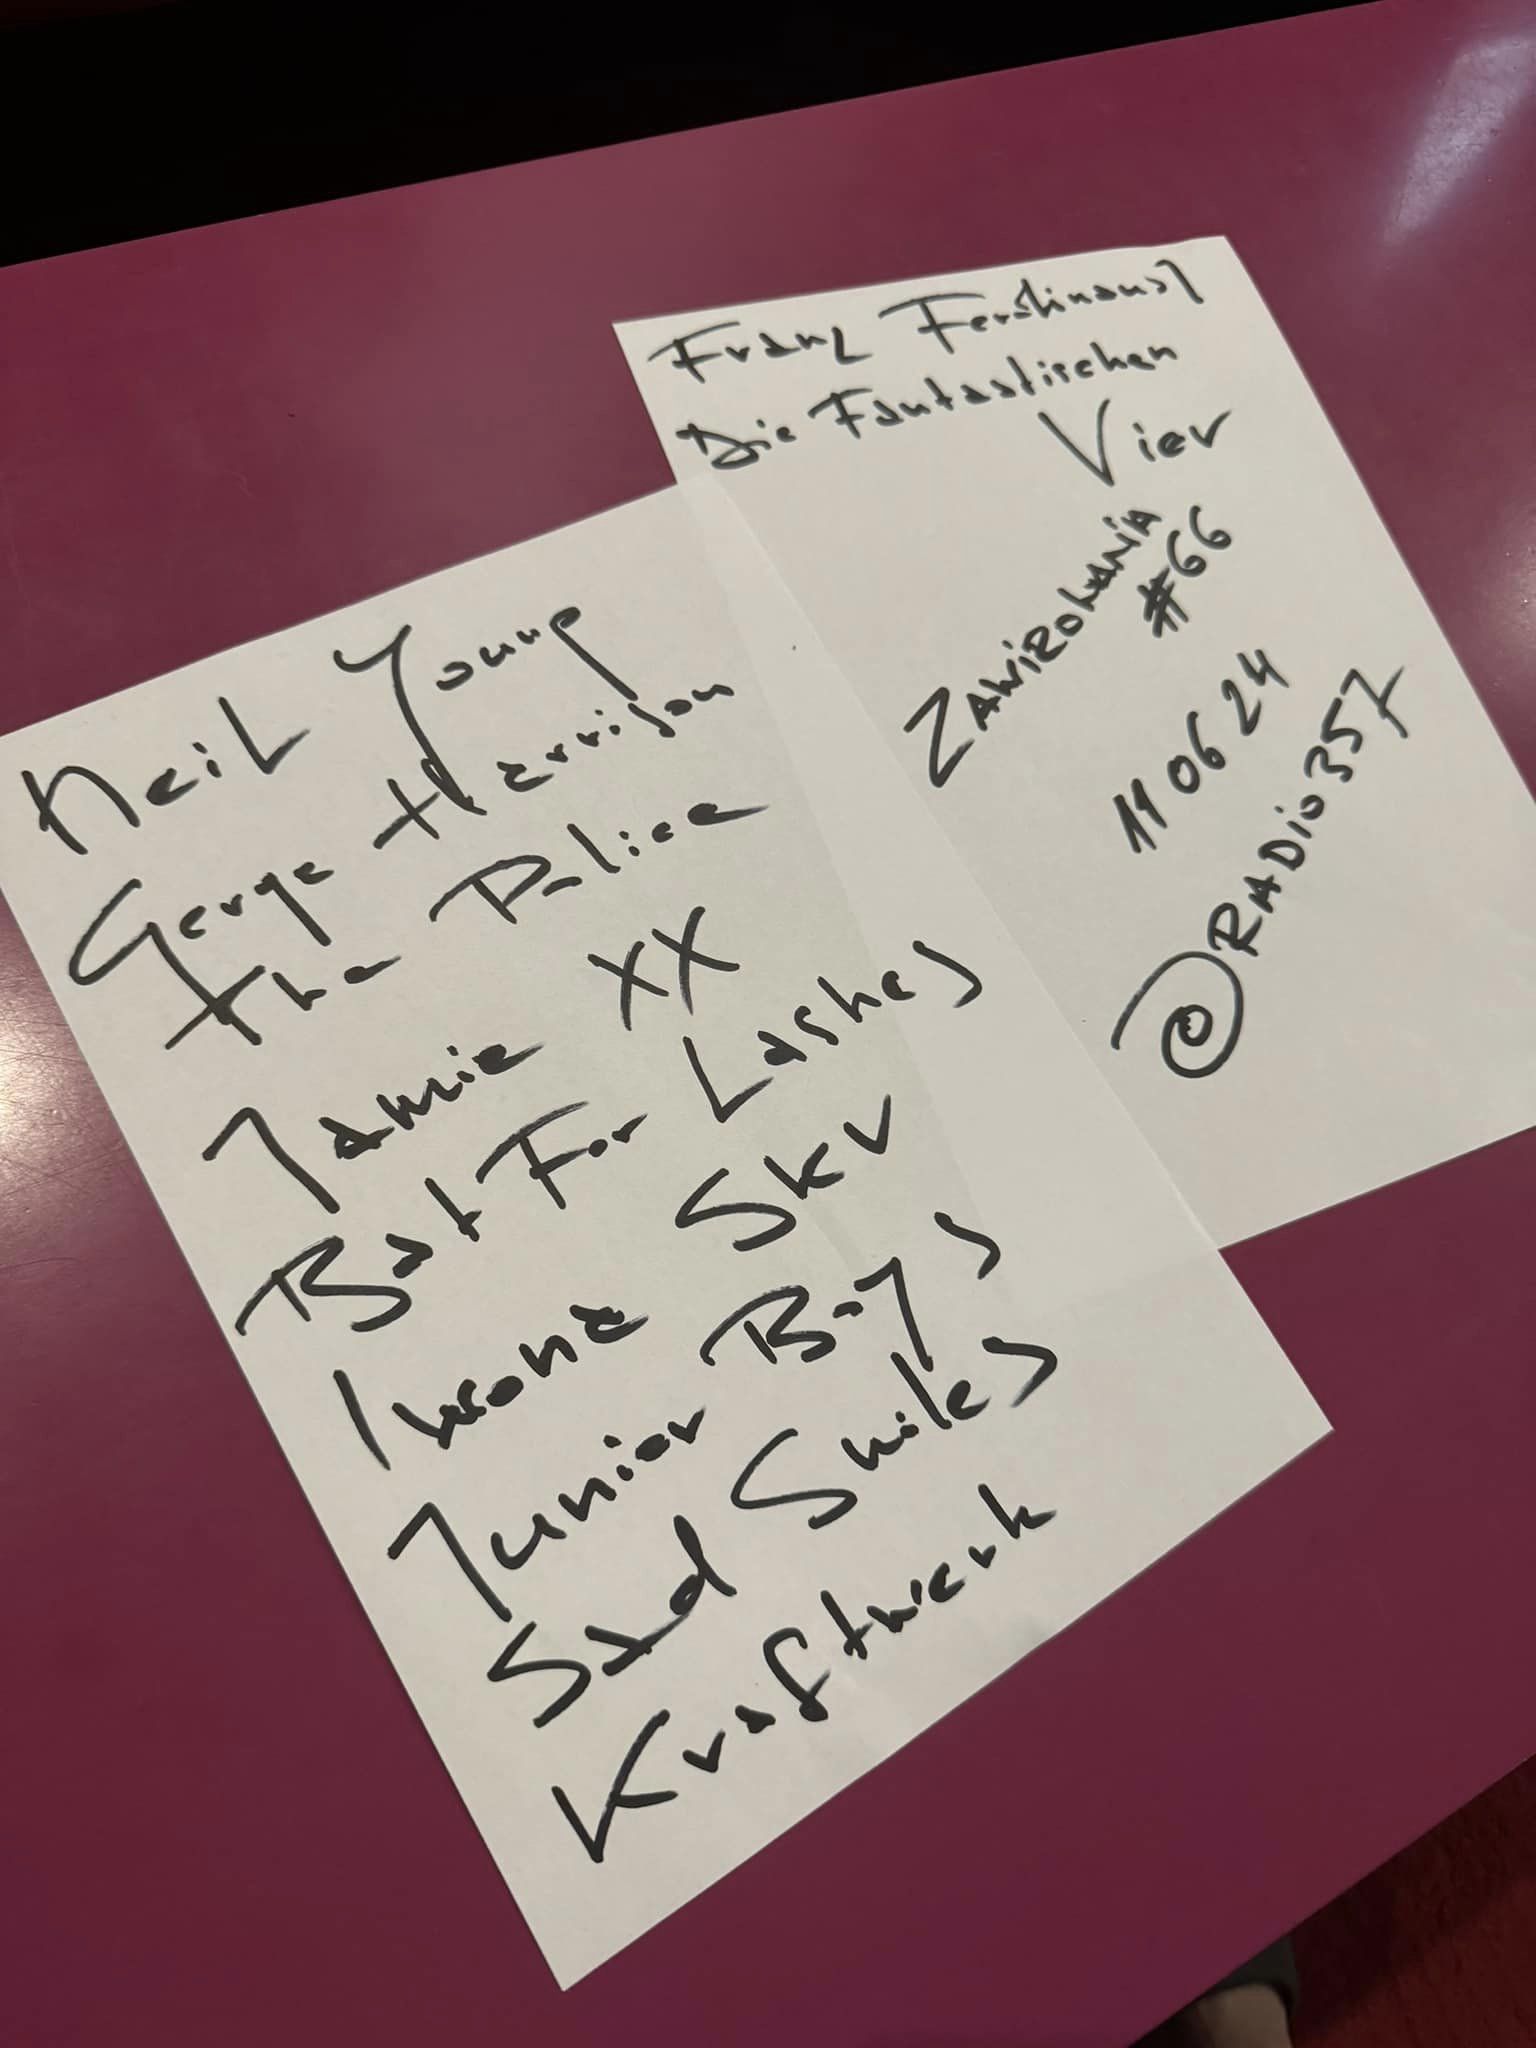 Neil Young
Gerge Harrison
The Police
Jamie XX
Bat For Lashes
Iwona Skv
Junior Boys
Sad Smiles
Kraftwerk
Franz Ferdinand
Die Fantastischen
Vier
ZAWIROWANIA
#66
11 06 24
@RADIO357